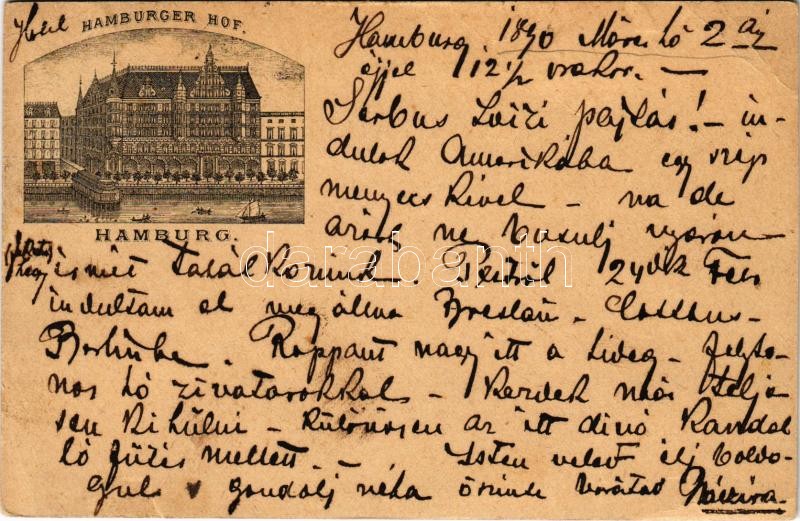 Hotel HAMBURGER HOF.
HAMBURG.
Hamburg 1890 hó 2 án
éjjel 12 1/2 órakor. —
Serbus pajtás! – in-
dulok Amerikába egy szép
menyecskével – na de
azért ne busulj nyáron
ismét találkozunk. Pestről 24 ik Feb
indultam el megállva Breslau – Cottbus –
Berlinbe. Roppant nagy itt a hideg – folyto-
nos hó zivatarokkal – kezdek már telje
sen kihülni – különösen az itt divó kandal
ló fűtés mellett. – Isten veled élj boldo-
gul s gondolj néha őszinte barátod
darabanth